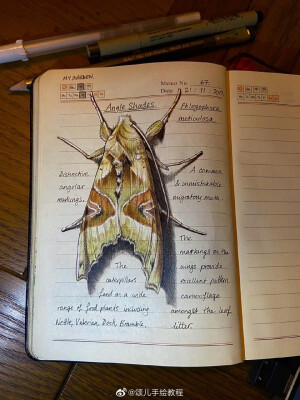 MY GARDEN.
Memo No. 67.
Date 21 / 11 / 20
Angle Shades.
Phlogophora
meticulosa.
Distinctive
angular
markings.
A common
& unmistakable
migratory moth.
The
caterpillars
feed on a wide
range of food plants including
Nettle, Valerian, Dock, Bramble.
The
markings on the
wings provide
excellent pattern
camouflage
amongst the leaf
litter.
@颂儿手绘教程